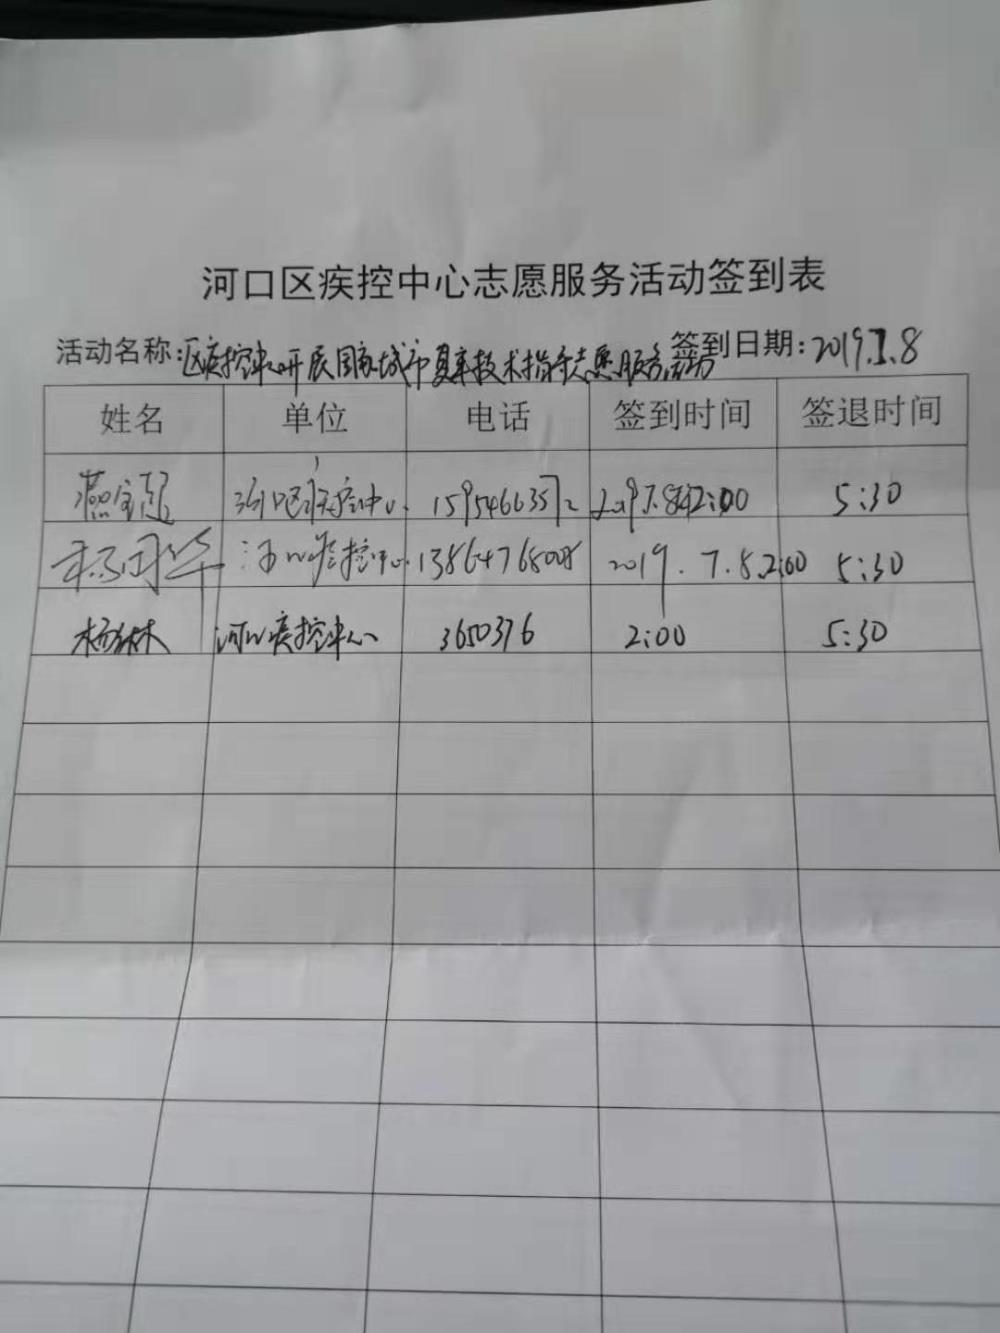 河口区疾控中心志愿服务活动签到表
活动名称:区疾控中心开展国家城市复审技术指导志愿服务活动 签到日期:2019.7.8
姓名 单位 电话 签到时间 签退时间
燕宝 河口区疾控中心 15954663572 2019.7.8 2:00 5:30
河口疾控中心 13864768008 2019.7.8.2:00 5:30
杨林 河口疾控中心 3650376 2:00 5:30